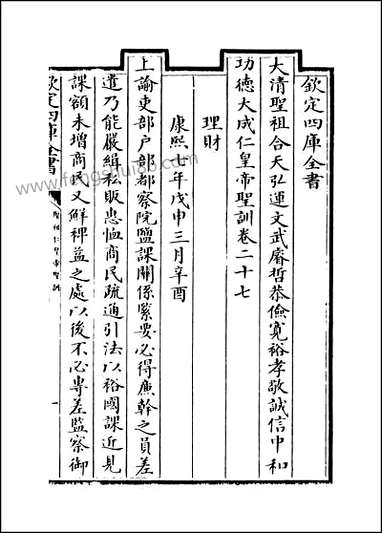 欽定四庫全書
大清聖祖合天弘運文武睿哲恭儉寛裕孝敬誠信中和
功德大成仁皇帝聖訓卷二十七
理財
康熙七年戊申三月辛酉
上諭吏部户部都察院鹽課關係緊要必得廉幹之員差
遣乃能嚴緝私販惠恤商民疏通引法以裕國課近見
課額未增商民又鮮裨益之處以後不必專差監察御
欽定四庫全書
聖祖仁皇帝聖訓
一